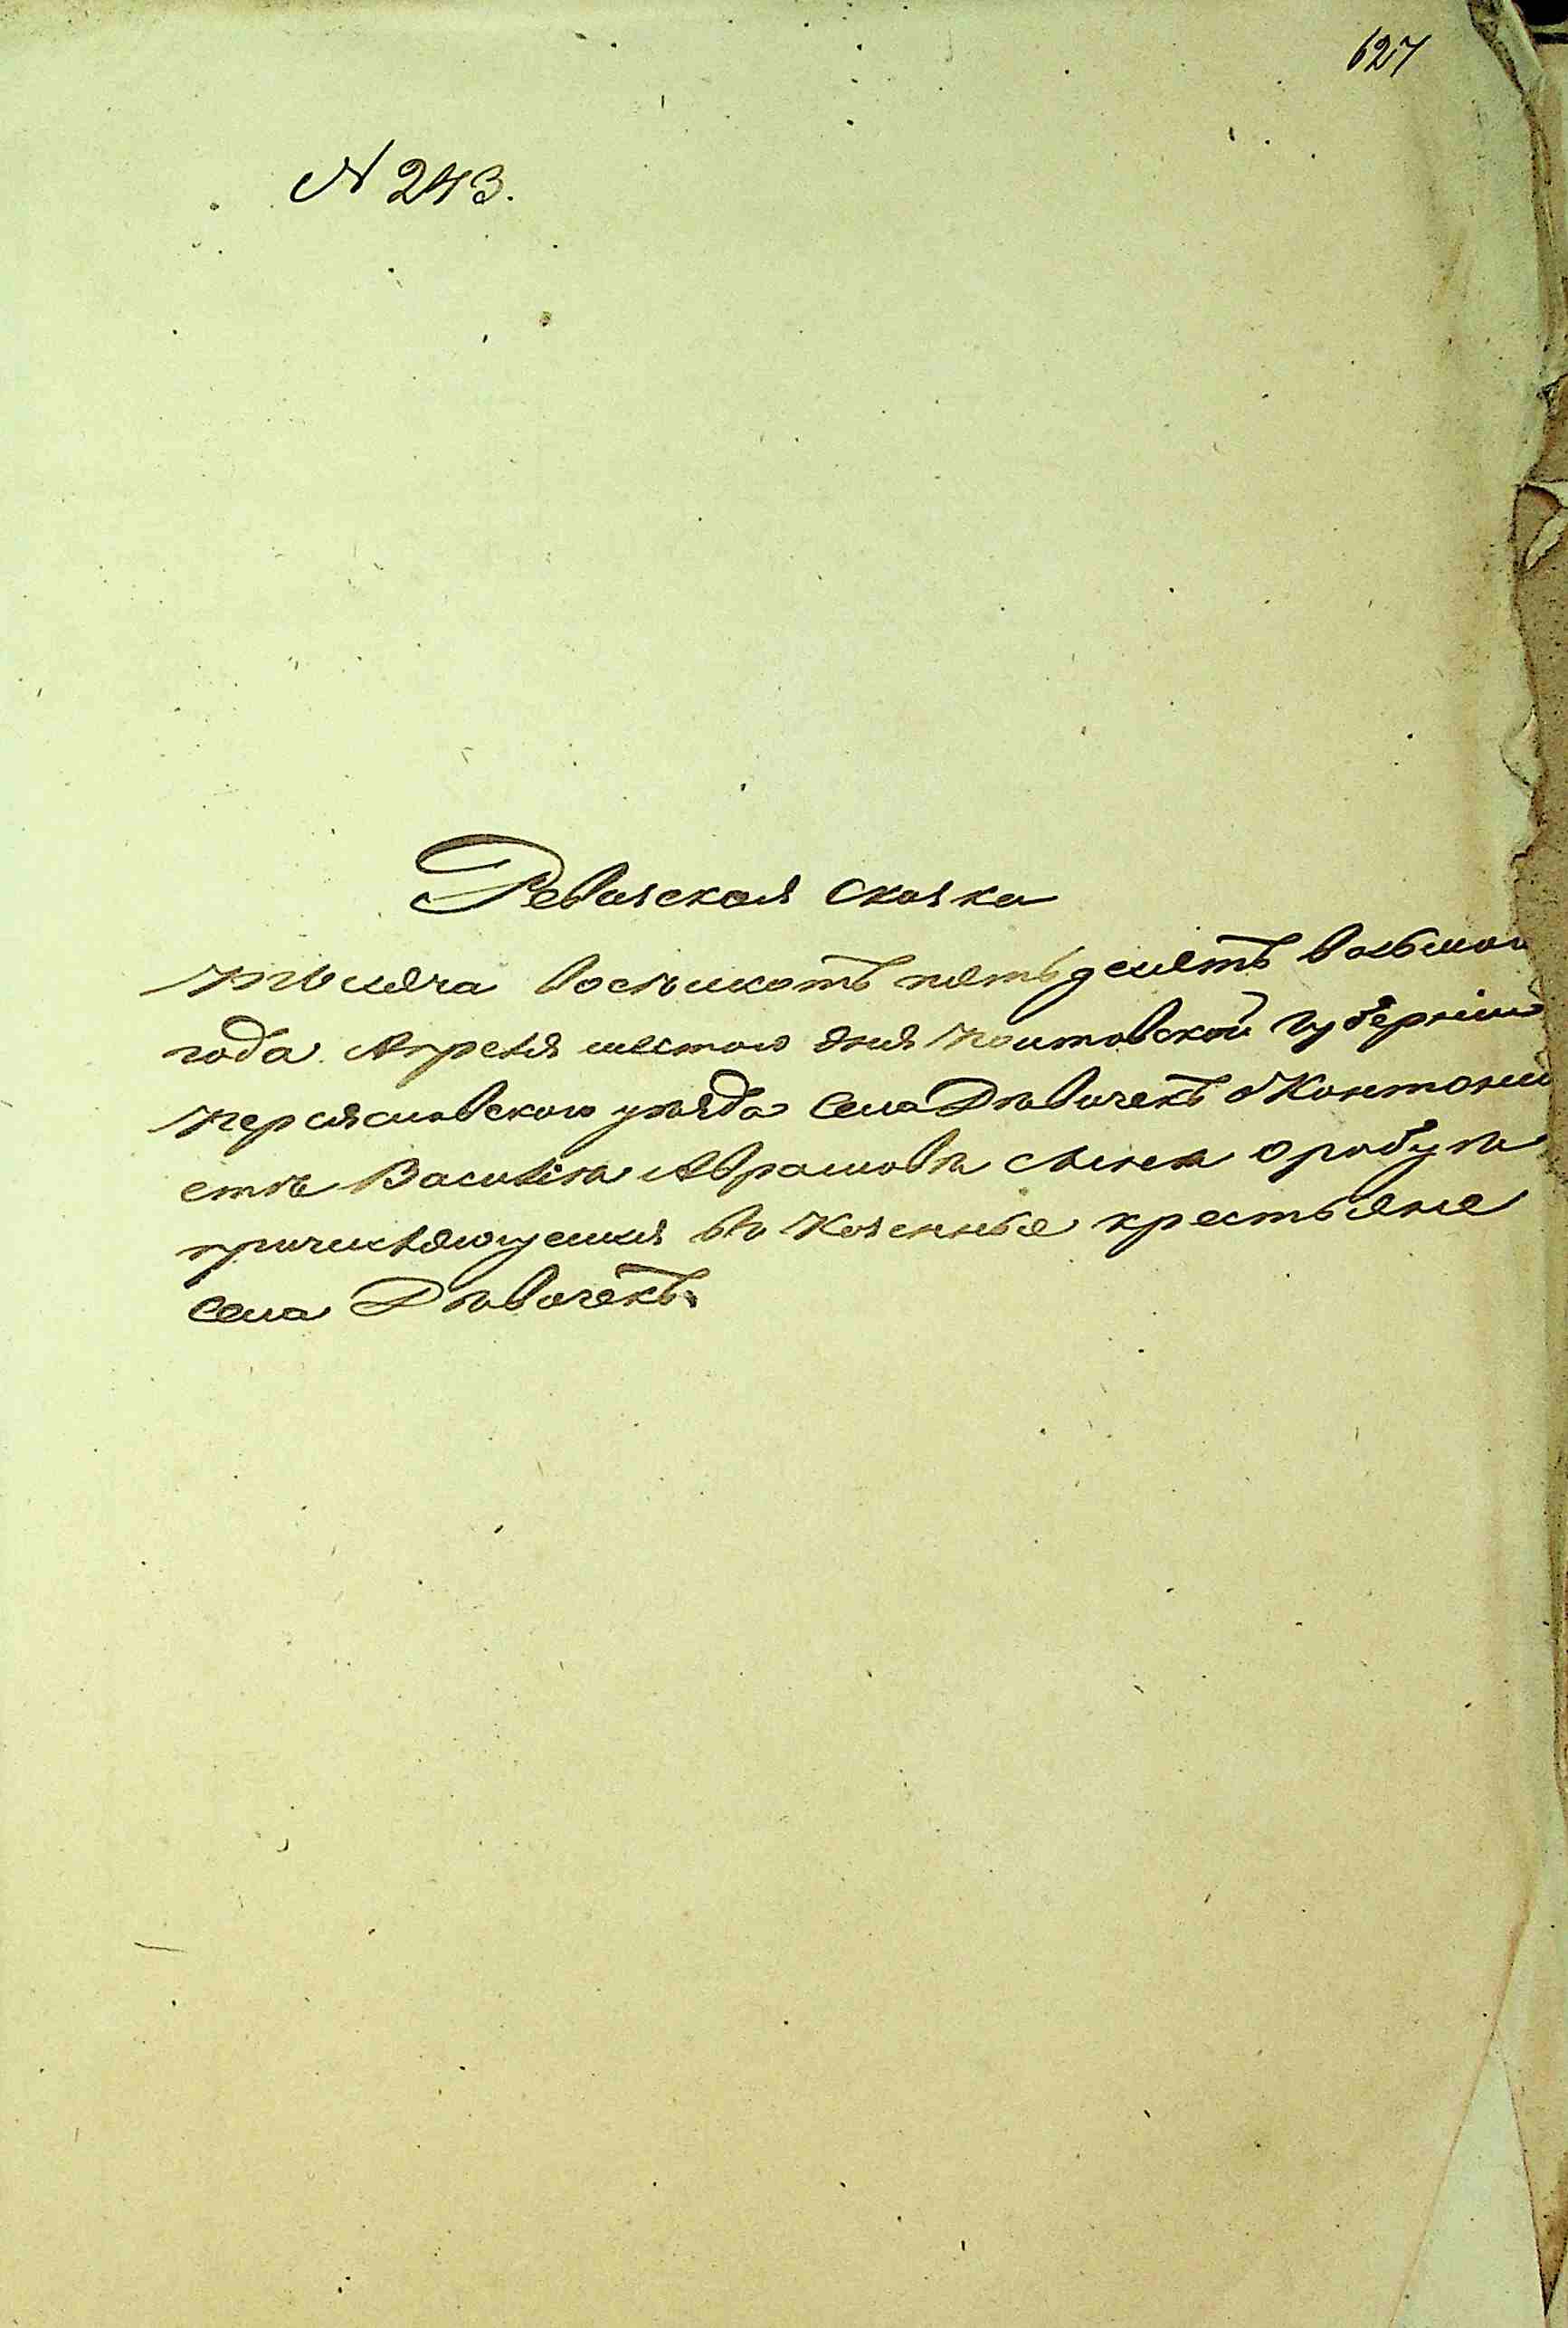 627
N 243.
Ревизская сказка
Тысяча восъмсотъ пятьдесятъ восьмого
года Апреля шестого дня Полтовской Губерніи
Переясловского уезда Села Дѣвичекъ о
Василія Аврамова сына
причисляющемся въ Козенные крестьяне
Села Дѣвичекъ.